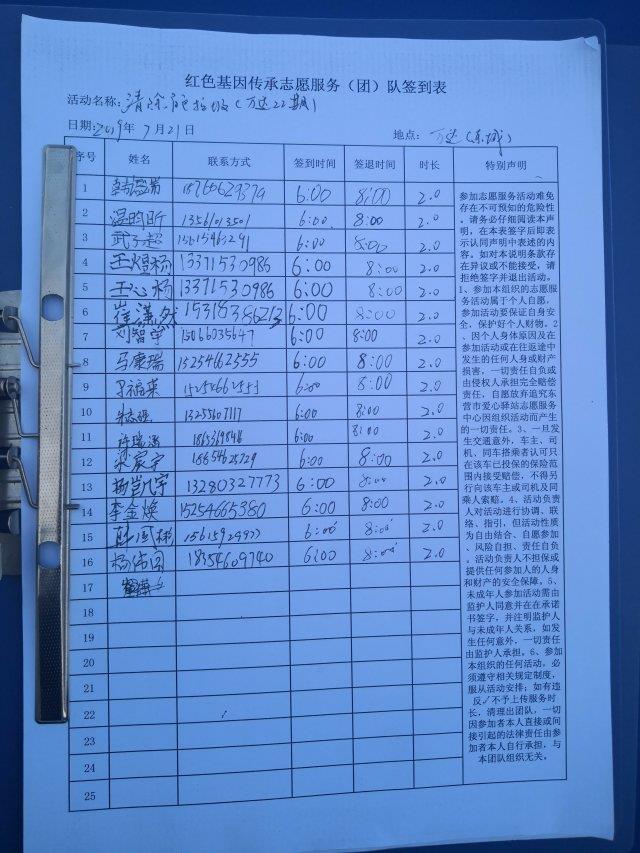 红色基因传承志愿服务（团）队签到表
活动名称：清除 垃圾（万达22期）
日期：2019年 7月21日 地点： 万达（东城）
序号 姓名 联系方式 签到时间 签退时间 时长 特别声明
1 18766629379 6:00 8:00 2.0
2 温昀昕 13561013501 6:00 8:00 2.0
3 武子超 6:00 8:00 2.0
4 王煜杨 13371530986 6:00 8:00 2.0
5 王心杨 13371530986 6:00 8:00 2.0
6 崔潇然 15318386213 6:00 8:00 2.0
7 刘智宇 15066035647 6:00 8:00 2.0
8 马康瑞 15254662555 6:00 8:00 2.0
9 15254662555 6:00 8:00 2.0
10 13255607117 6:00 8:00 2.0
11 6:00 8:00 2.0
12 梁宸宇 18654625729 6:00 8:00 2.0
13 13280327773 6:00 8:00 2.0
14 李金焕 15254665380 6:00 8:00 2.0
15 6:00 8:00 2.0
16 杨伟国 18354609740 6:00 8:00 2.0
17
18
19
20
21
22
23
24
25
参加志愿服务活动难免
存在不可预知的危险性
，请务必仔细阅读本声
明，在本表签字后即表
示认同声明中表述的内
容。如对本说明条款存
在异议或不能接受，请
拒绝签字并退出活动。
1、参加本组织的志愿服
务活动属于个人自愿，
参加活动要保证自身安
全，保护好个人财物。2
、因个人身体原因及在
参加活动或在往返途中
发生的任何人身或财产
损害，一切责任自负或
由侵权人承担完全赔偿
责任，自愿放弃追究东
营市爱心驿站志愿服务
中心因组织活动而产生
的一切责任。3、一旦发
生交通意外，车主、司
机、同车搭乘者认可只
在该车已投保的保险范
围内接受赔偿，不得另
行向该车主或司机及同
乘人索赔。4、活动负责
人对活动进行协调、联
络、指引，但活动性质
为自由结合、自愿参加
、风险自担、责任自负
。活动负责人不担保或
提供任何参加人的人身
和财产的安全保障。5、
未成年人参加活动需由
监护人同意并在在承诺
书签字，并注明监护人
与未成年人关系，如发
生任何意外，一切责任
由监护人承担。6、参加
本组织的任何活动，必
须遵守相关规定制度，
服从活动安排；如有违
反，不予上传服务时
长，清理出团队，一切
因参加者本人直接或间
接引起的法律责任由参
加者本人自行承担，与
本团队组织无关。